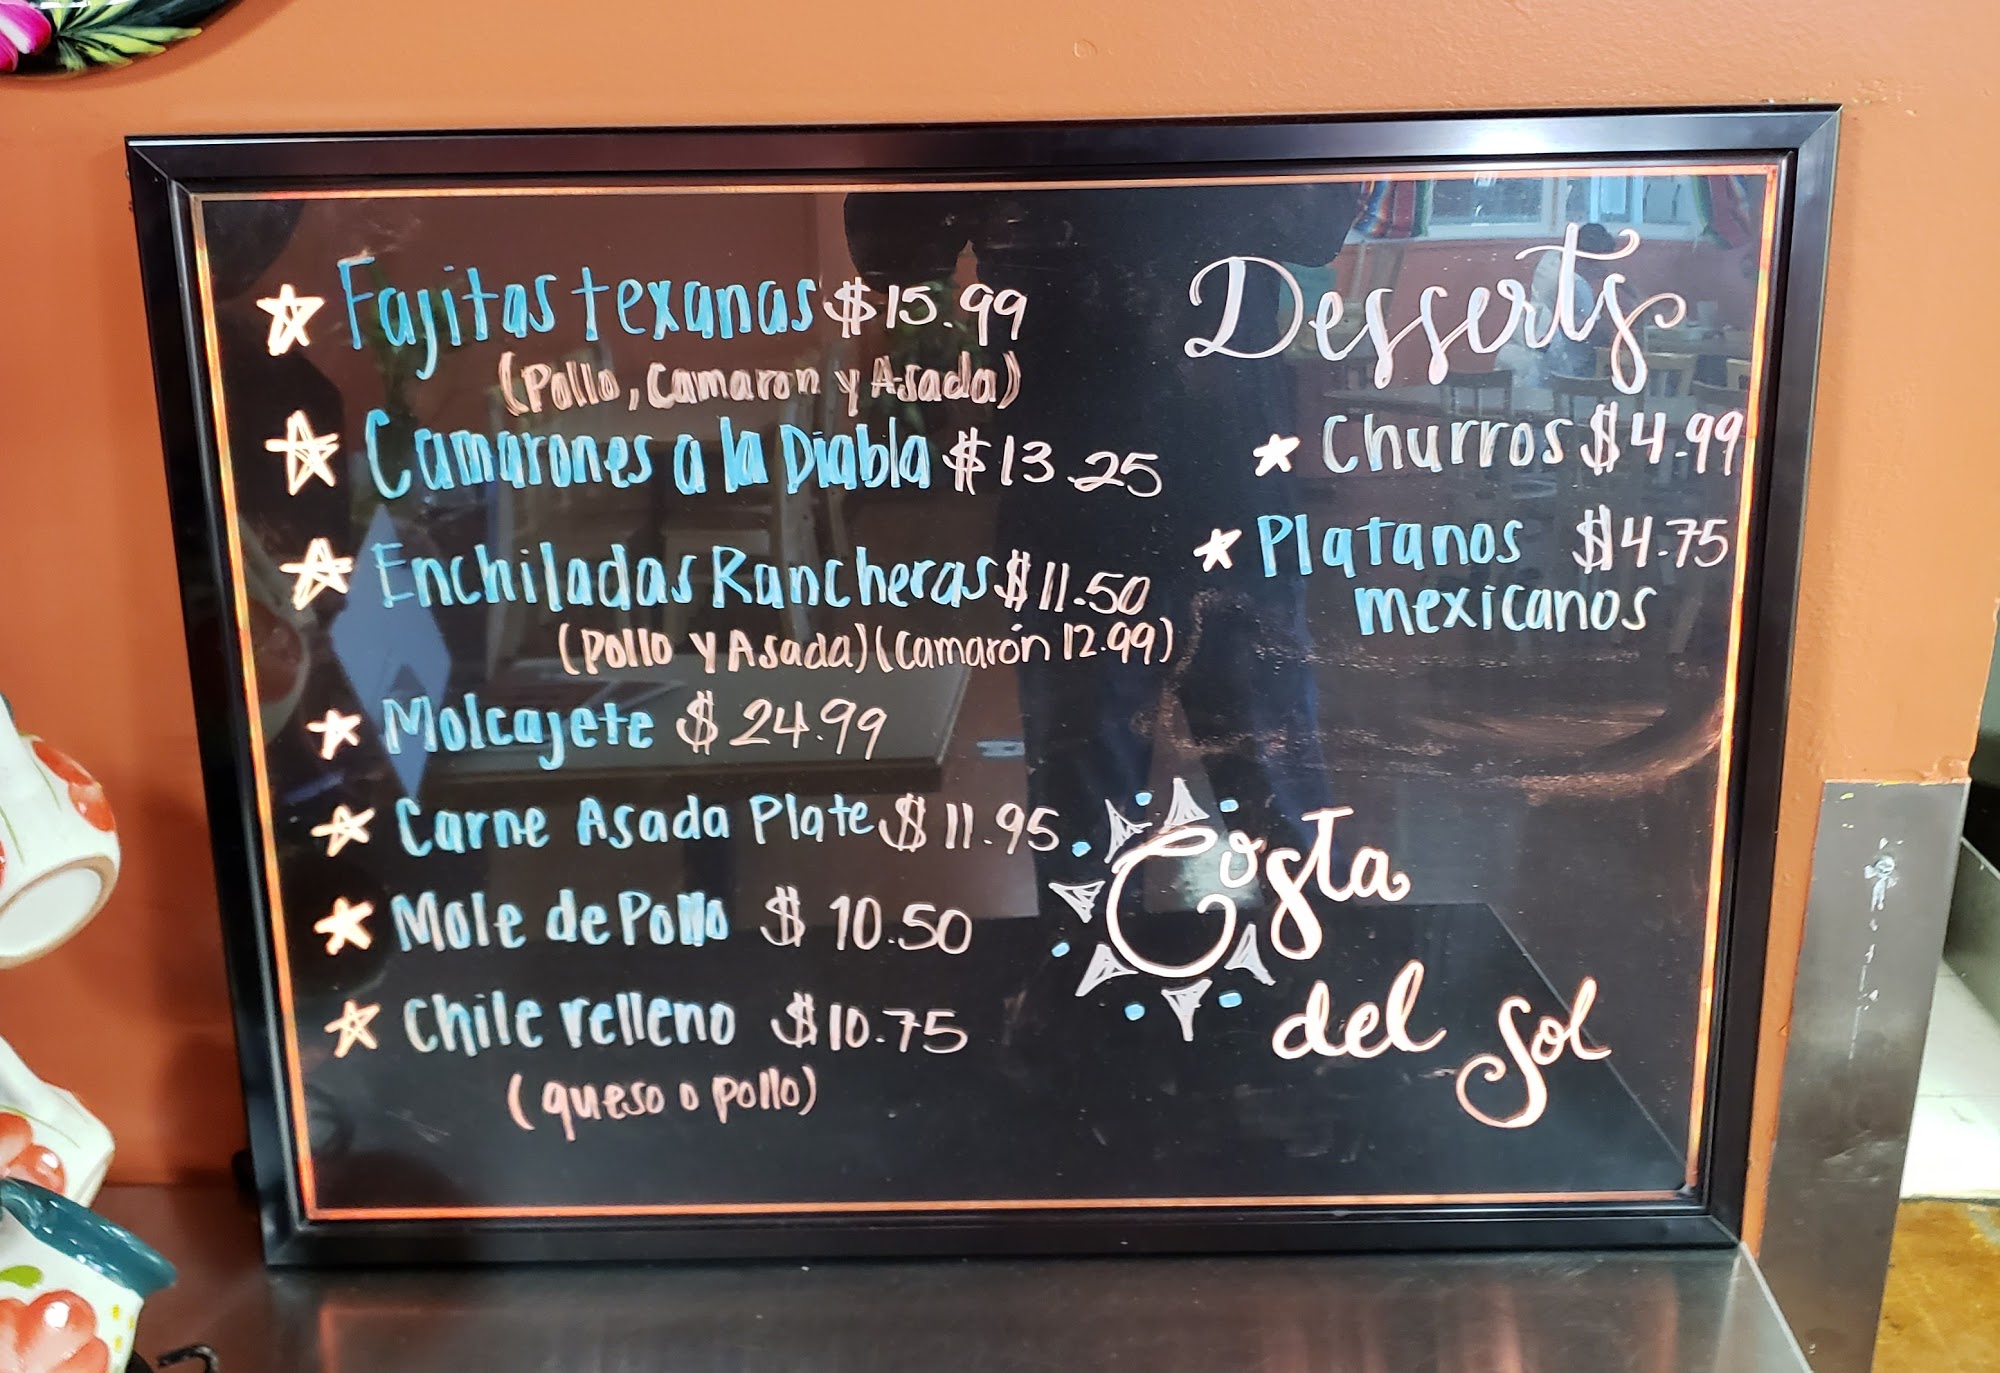 Fajitas texanas $15.99
(Pollo, Camaron y Asada)
Camarones a la Diabla $13.25
Enchiladas Rancheras $11.50
(Pollo y Asada) (Camarón 12.99)
Molcajete $24.99
Carne Asada Plate $11.95
Mole de Pollo $10.50
Chile relleno $10.75
(queso o pollo)
Desserts
Churros $4.99
Platanos $4.75
mexicanos
Costa
del Sol